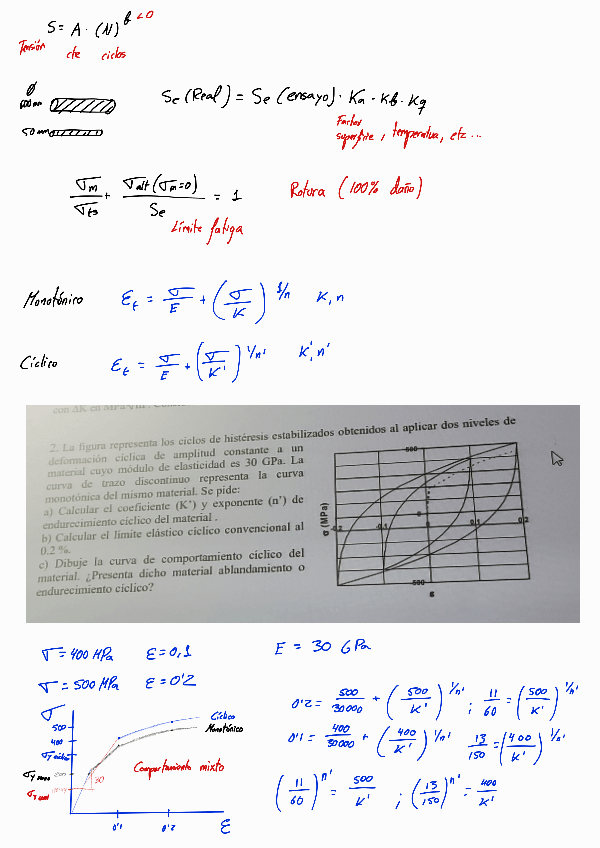 S = A · (N)^b <0
Tensión cte ciclos
Ø
600mm
50mm
Se (Real) = Se (ensayo) · Ka · Kb · Kq
Factor
superficie, temperatura, etc...
σm/σts + σalt (σm=0)/Se = 1
Rotura (100% daño)
Límite fatiga
Monotónico εt = σ/E + (σ/K)^1/n K, n
Cíclico εt = σ/E + (σ/K')^1/n' K', n'
con ΔK en MPa
2. La figura representa los ciclos de histéresis estabilizados obtenidos al aplicar dos niveles de
deformación cíclica de amplitud constante a un
material cuyo módulo de elasticidad es 30 GPa. La
curva de trazo discontinuo representa la curva
monotónica del mismo material. Se pide:
a) Calcular el coeficiente (K') y exponente (n') de
endurecimiento cíclico del material .
b) Calcular el límite elástico cíclico convencional al
0.2 %.
c) Dibuje la curva de comportamiento cíclico del
material. ¿Presenta dicho material ablandamiento o
endurecimiento cíclico?
500
σ (MPa)
-0.2 -0.1 0 0.1 0.2
0
-500
ε
σ = 400 MPa ε = 0,1
σ = 500 MPa ε = 0'2
E = 30 GPa
0'2 = 500/30000 + (500/K')^1/n' ; 11/60 = (500/K')^1/n'
0'1 = 400/30000 + (400/K')^1/n' 13/150 = (400/K')^1/n'
(11/60)^n' = 500/K' ; (13/150)^n' = 400/K'
σ
500
400
200
30
Cíclico
Monotónico
Comportamiento mixto
0'1 0'2 ε